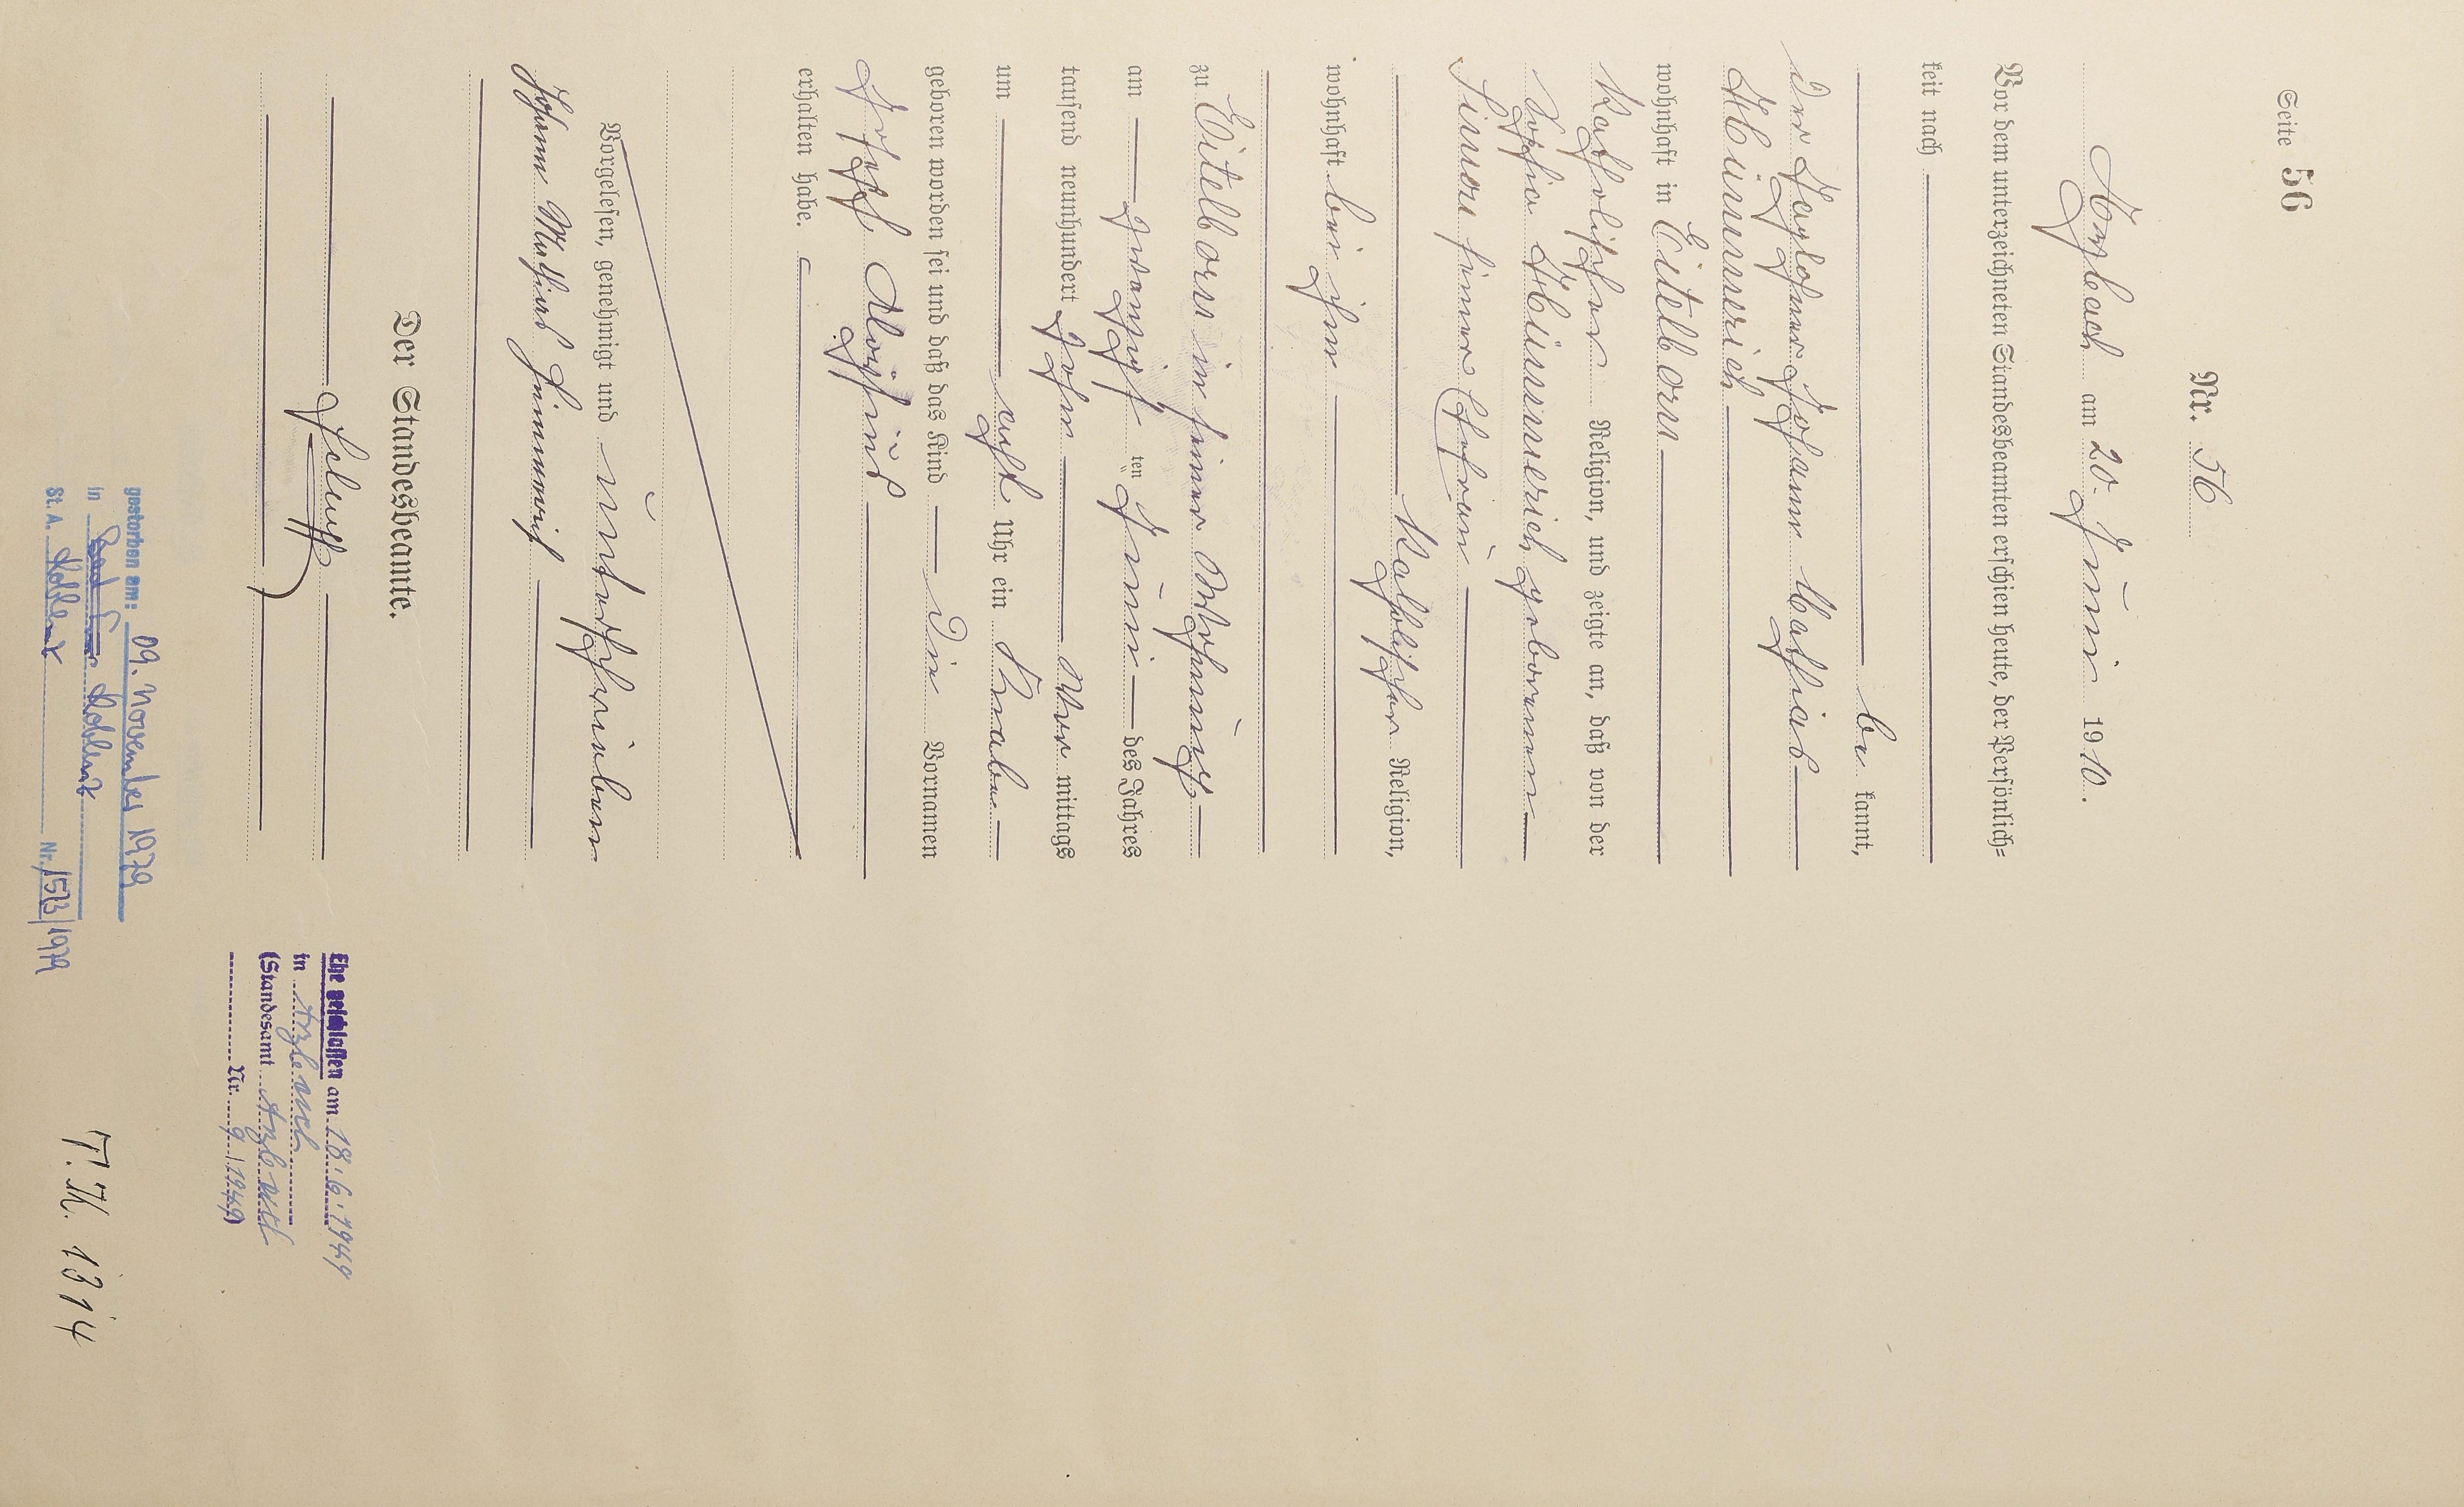 Seite 56
Nr. 56
Arzbach am 20. Juni 1910.
Vor dem unterzeichneten Standesbeamten erschien heute, der Persönlich=
keit nach
be kannt,
der Taglöhner Johann Mathias
Hümmerich
wohnhaft in Eitelborn
Katholischer Religion, und zeigte an, daß von der
Sophia Hümmerich geborenen
Simon seiner Ehefrau
Katholischer Religion,
wohnhaft bei ihm
zu Eitelborn in seiner Wohnung
am zwanzigsten Juni des Jahres
tausend neunhundert zehn Vor mittags
um acht Uhr ein Knabe
geboren worden sei und daß das Kind die Vornamen
Joseph Aloysius
erhalten habe.
Vorgelesen, genehmigt und unterschrieben
Johann Mathias Hümmerich
Der Standesbeamte.
Ehe geschlossen am 18.6.1949
in Arzbach
(Standesamt Arzbach
Nr. 9/1949)
gestorben am: 09. November 1979
in Koblenz
St. A. Koblenz Nr. 1573/1979
T.H. 1314